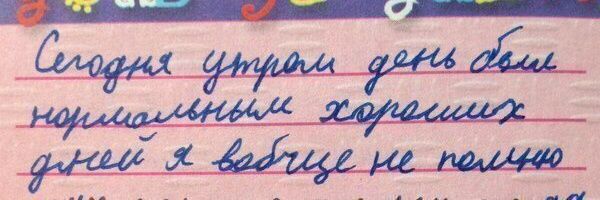 Сегодня утром день был
нормальным хороших
дней я вобще не помню